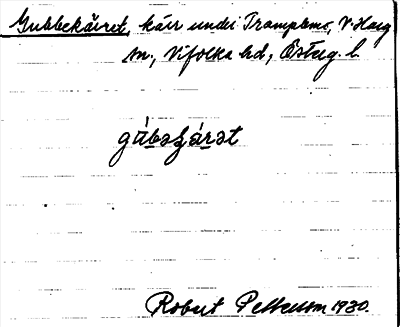 Gubbekärret, kärr under Tramplms, V. Harg
sn., Vifolka hd, Österg. l.
gúbəʒárət
Robert Pettersson 1930.